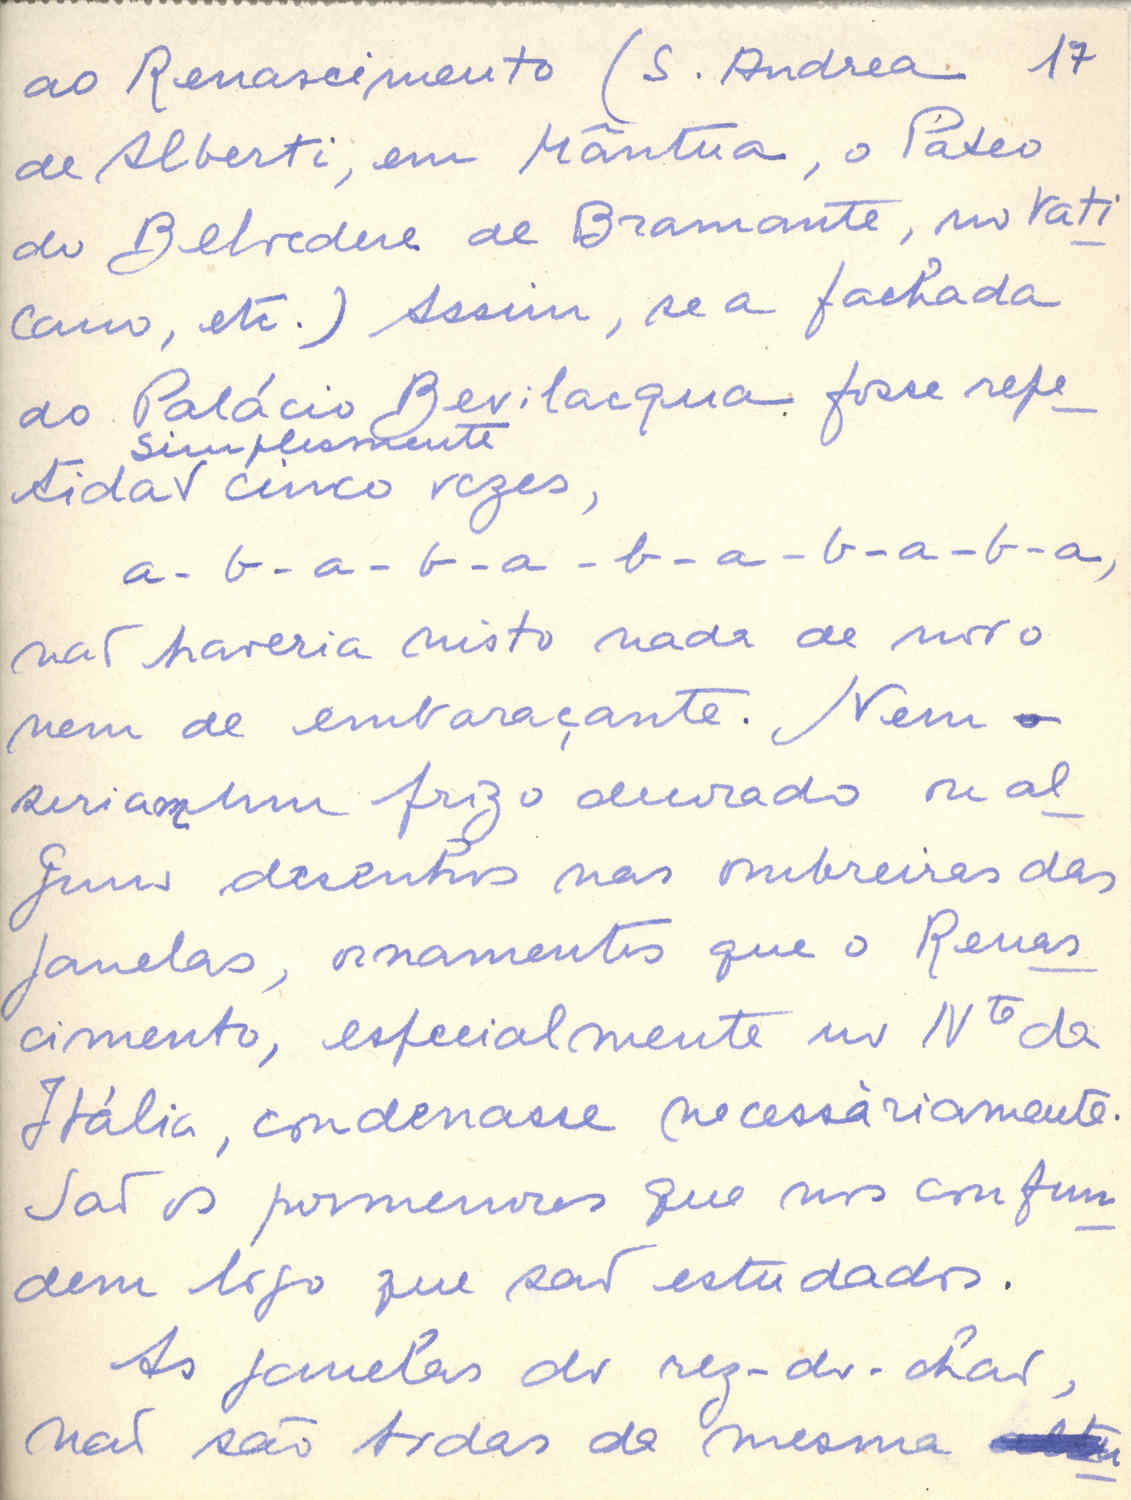 ao Renascimento (S. Andrea 17
de Alberti, em Mântua, o Páteo
do Belvedere de Bramante, no Vati
cano, etc.) Assim, se a fachada
do Palácio Bevilacqua fosse repe
simplesmente
tida cinco vezes,
a-b-a-b-a-b-a-b-a-b-a,
não haveria nisto nada de novo
nem de embaraçante. Nem
seriam um frizo decorado ou al
guns desenhos nas ombreiras das
janelas, ornamentos que o Renas
cimento, especialmente no Nte da
Itália, condenasse necessàriamente.
São os pormenores que nos confun
dem logo que são estudados.
As janelas do rez-do-chão,
não são todas da mesma